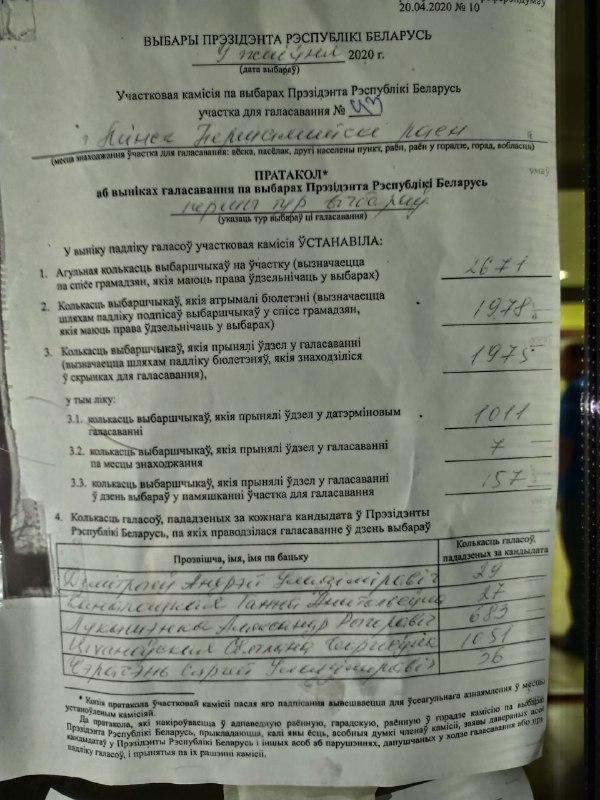 20.04.2020 № 10
ВЫБАРЫ ПРЭЗІДЭНТА РЭСПУБЛІКІ БЕЛАРУСЬ
9 жніўня 2020 г.
(дата выбараў)
Участковая камісія па выбарах Прэзідэнта Рэспублікі Беларусь
участка для галасавання № 43
г. Мінск Першамайскі раён
(месца знаходжання ўчастка для галасавання: вёска, пасёлак, другі населены пункт, раён, раён у горадзе, горад, вобласць)
ПРАТАКОЛ*
аб выніках галасавання па выбарах Прэзідэнта Рэспублікі Беларусь
першы тур выбараў
(указаць тур выбараў ці галасавання)
У выніку падліку галасоў участковая камісія ЎСТАНАВІЛА:
1. Агульная колькасць выбаршчыкаў на ўчастку (вызначаецца
па спісе грамадзян, якія маюць права ўдзельнічаць у выбарах) 2671
2. Колькасць выбаршчыкаў, якія атрымалі бюлетэні (вызначаецца
шляхам падліку подпісаў выбаршчыкаў у спісе грамадзян,
якія маюць права ўдзельнічаць у выбарах) 1978
3. Колькасць выбаршчыкаў, якія прынялі ўдзел у галасаванні
(вызначаецца шляхам падліку бюлетэняў, якія знаходзіліся
ў скрынках для галасавання), 1975
у тым ліку:
3.1. колькасць выбаршчыкаў, якія прынялі ўдзел у датэрміновым
галасаванні 1011
3.2. колькасць выбаршчыкаў, якія прынялі ўдзел у галасаванні
па месцы знаходжання 7
3.3. колькасць выбаршчыкаў, якія прынялі ўдзел у галасаванні
ў дзень выбараў у памяшканні ўчастка для галасавання 157
4. Колькасць галасоў, пададзеных за кожнага кандыдата ў Прэзідэнты
Рэспублікі Беларусь, па якіх праводзілася галасаванне ў дзень выбараў
Прозвішча, імя, імя па бацьку
Колькасць галасоў,
пададзеных за кандыдата
Дмітрыеў Андрэй Уладзіміравіч 29
Канапацкая Ганна Анатольеўна 27
Лукашэнка Аляксандр Рыгоравіч 683
Ціханоўская Святлана Георгіеўна 1051
Чэрачэнь Сяргей Уладзіміравіч 26
* Копія пратакола ўчастковай камісіі пасля яго падпісання вывешваецца для ўсеагульнага азнаямлення ў месцы,
устаноўленым камісіяй.
Да пратакола, які накіроўваецца ў адпаведную раённую, гарадскую, раённую ў горадзе камісію па выбарах
Прэзідэнта Рэспублікі Беларусь, прыкладаюцца, калі яны ёсць, асобныя думкі членаў камісіі, заявы давераных асоб
кандыдатаў у Прэзідэнты Рэспублікі Беларусь і іншых асоб аб парушэннях, дапушчаных у ходзе галасавання або пры
падліку галасоў, і прынятыя па іх рашэнні камісіі.